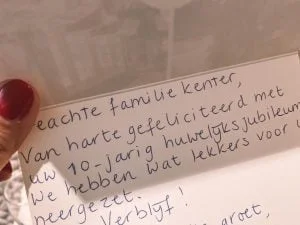 eachte familie kenter,
Van harte gefeliciteerd met
uw 10-jarig huwelijksjubileum
We hebben wat lekkers voor
neergezet.
Verblijf!
groet,